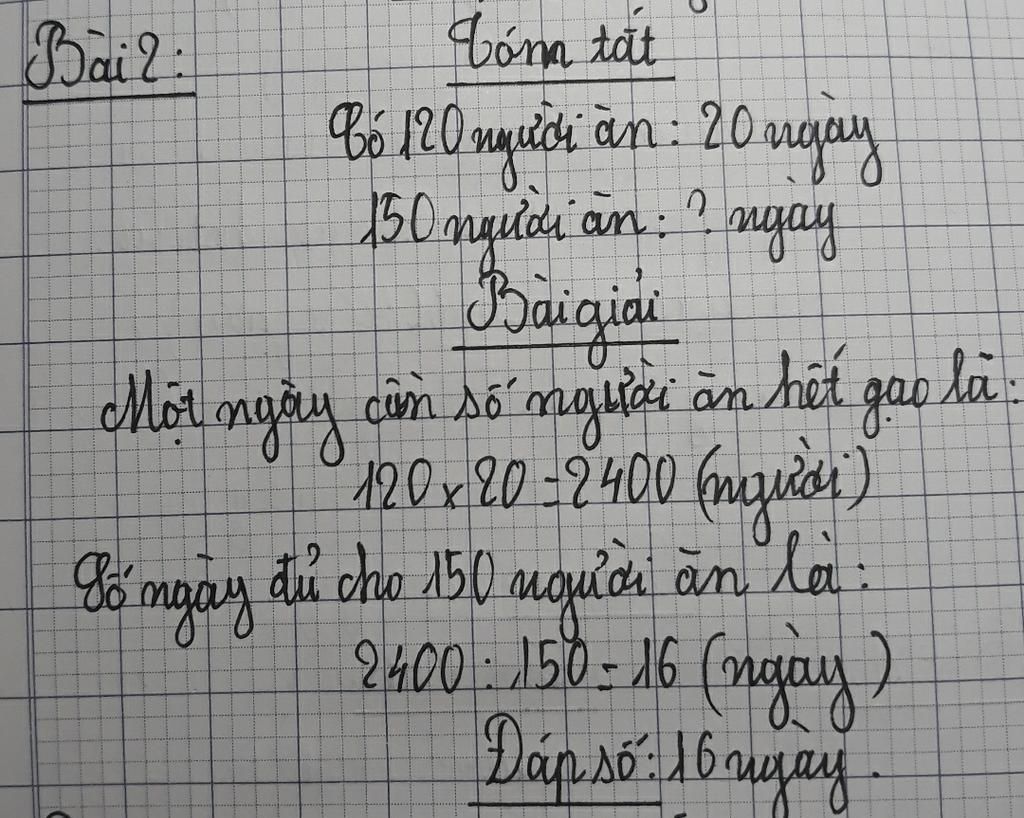 Bài 2: Tóm tắt
Có 120 người ăn: 20 ngày
150 người ăn: ? ngày
Bài giải
Một ngày cần số người ăn hết gạo là:
120 x 20 = 2400 (người)
Số ngày đủ cho 150 người ăn là:
2400 : 150 = 16 (ngày)
Đáp số: 16 ngày.